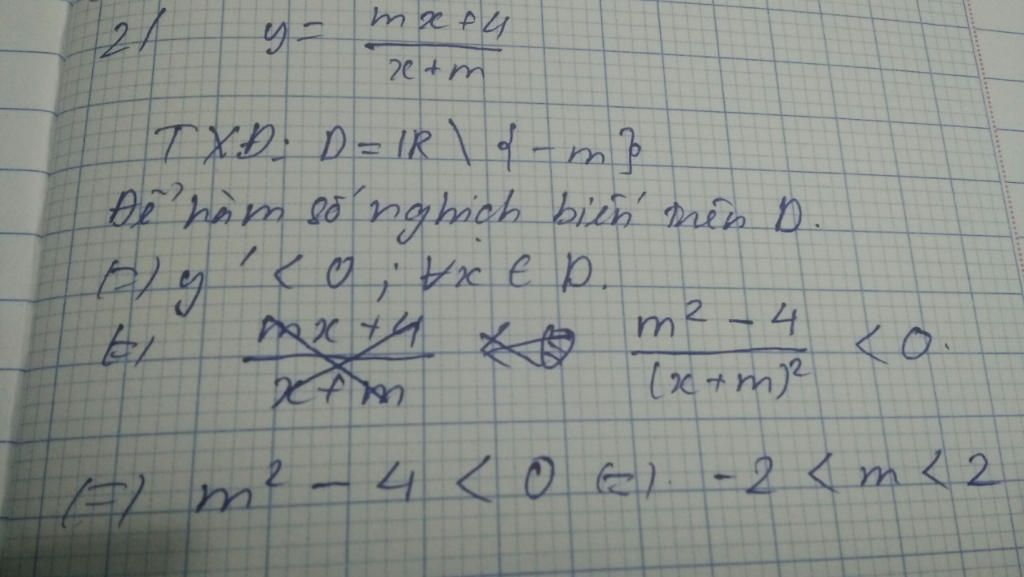 2/ y = mx+4 / x+m
TXĐ: D = IR \ {-m}
Để hàm số nghịch biến trên D.
(=) y' < 0 ; ∀x ∈ D.
(=) m² - 4 / (x+m)² < 0.
(=) m² - 4 < 0 (=). -2 < m < 2